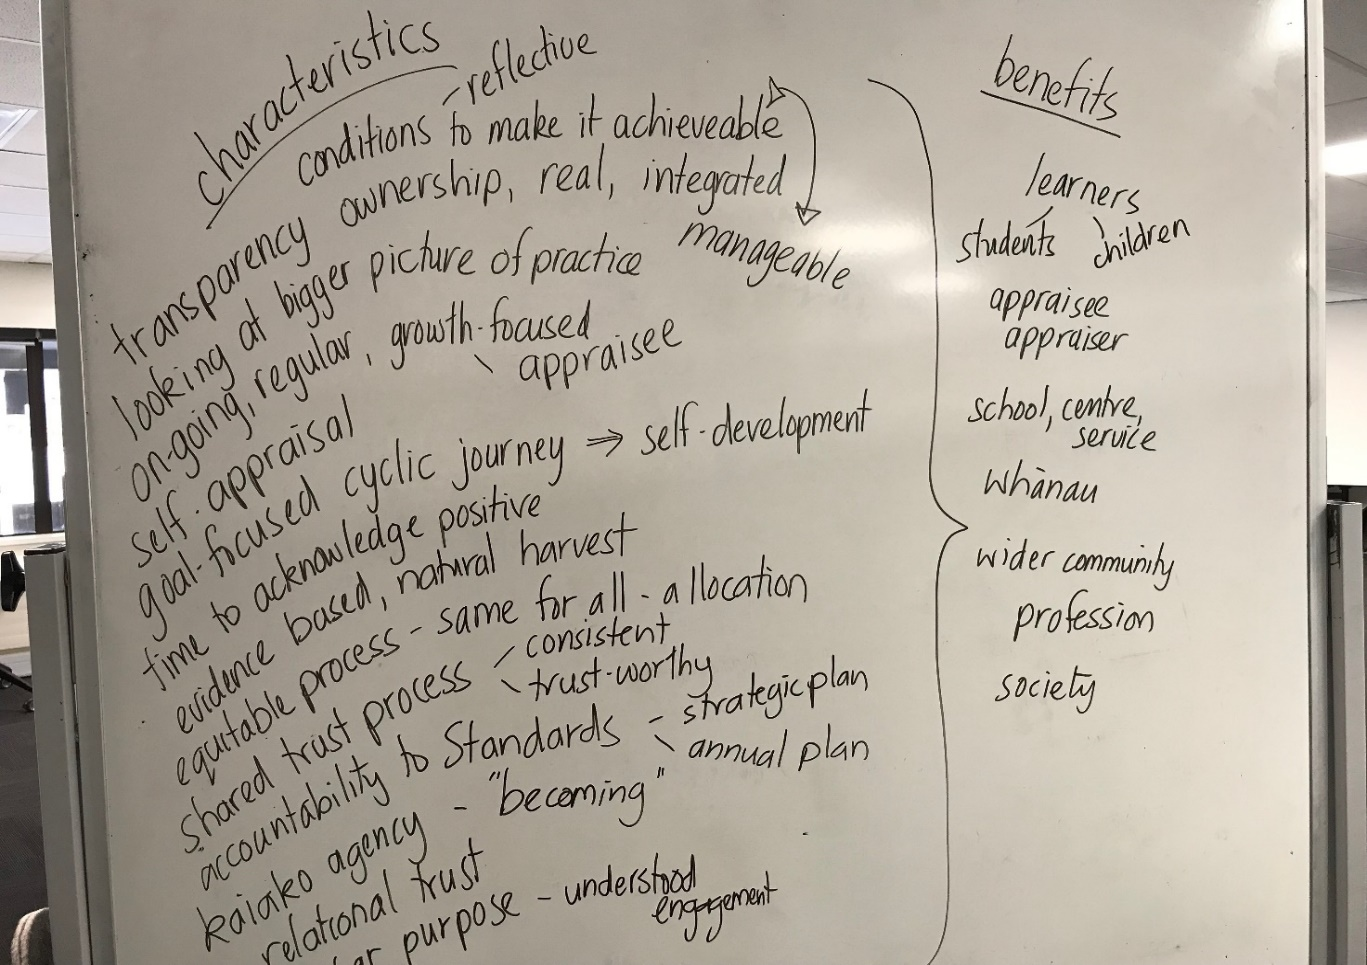 characteristics
- reflective
conditions to make it achieveable
ownership, real, integrated
manageable
transparency
looking at bigger picture of practice
on-going, regular, growth-focused
\ appraisee
self-appraisal
goal-focused cyclic journey ⇒ self-development
time to acknowledge positive
evidence based, natural harvest
equitable process - same for all - allocation
shared trust process / consistent
\ trust-worthy
accountability to Standards - strategic plan
\ annual plan
kaiako agency - "becoming"
relational trust
purpose - understood
engagement
benefits
learners
students children
appraisee
appraiser
school, centre,
service
whānau
wider community
profession
society